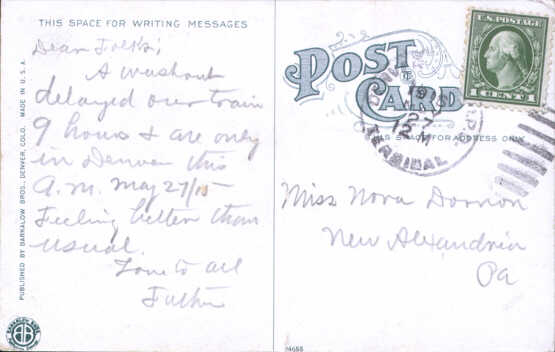 THIS SPACE FOR WRITING MESSAGES
Dear Folks;
A washout
delayed our train
9 hours & are only
in Denver this
A.M. May 27/15
Feeling better than
usual.
Love to all
Father
PUBLISHED BY BARKALOW BROS., DENVER, COLO. MADE IN U.S.A.
BARKALOW BROS
POST CARD
THIS SPACE FOR ADDRESS ONLY
U.S. POSTAGE
1 CENT 1
27
12 M
TERMINAL
Miss Nora Dornon
New Alexandria
Pa